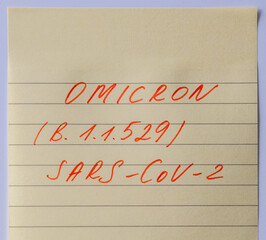 OMICRON
(B. 1.1.529)
SARS-CoV-2